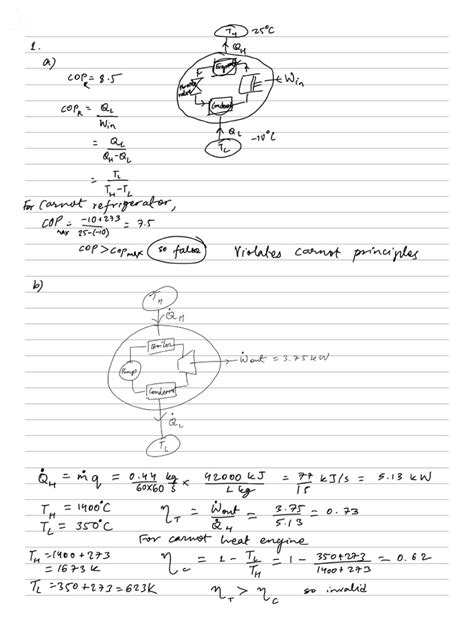 1.
a)
T_H 25°C
Q_H
COP_R = 8.5
W_in
COP_R = Q_L / W_in
Q_L
T_L -10°C
= Q_L / Q_H-Q_L
= T_L / T_H-T_L
For Carnot refrigerator,
COP_max = -10+273 / 25-(-10) = 7.5
COP > COP_max so false Violates carnot principles
b)
T_H
Q̇_H
Boiler
Pump
Ẇout = 3.75 kW
Q̇_L
T_L
Q̇_H = ṁ q = 0.44 kg / 60x60 s x 42000 kJ / 1 kg = 77/15 kJ/s = 5.13 kW
T_H = 1400°C
T_L = 350°C
η_T = Ẇout / Q̇_H = 3.75 / 5.13 = 0.73
For carnot heat engine
T_H = 1400 + 273
= 1673 K
η_C = 1 - T_L / T_H = 1 - 350+273 / 1400+273 = 0.62
T_L = 350 + 273 = 623K
η_T > η_C so invalid